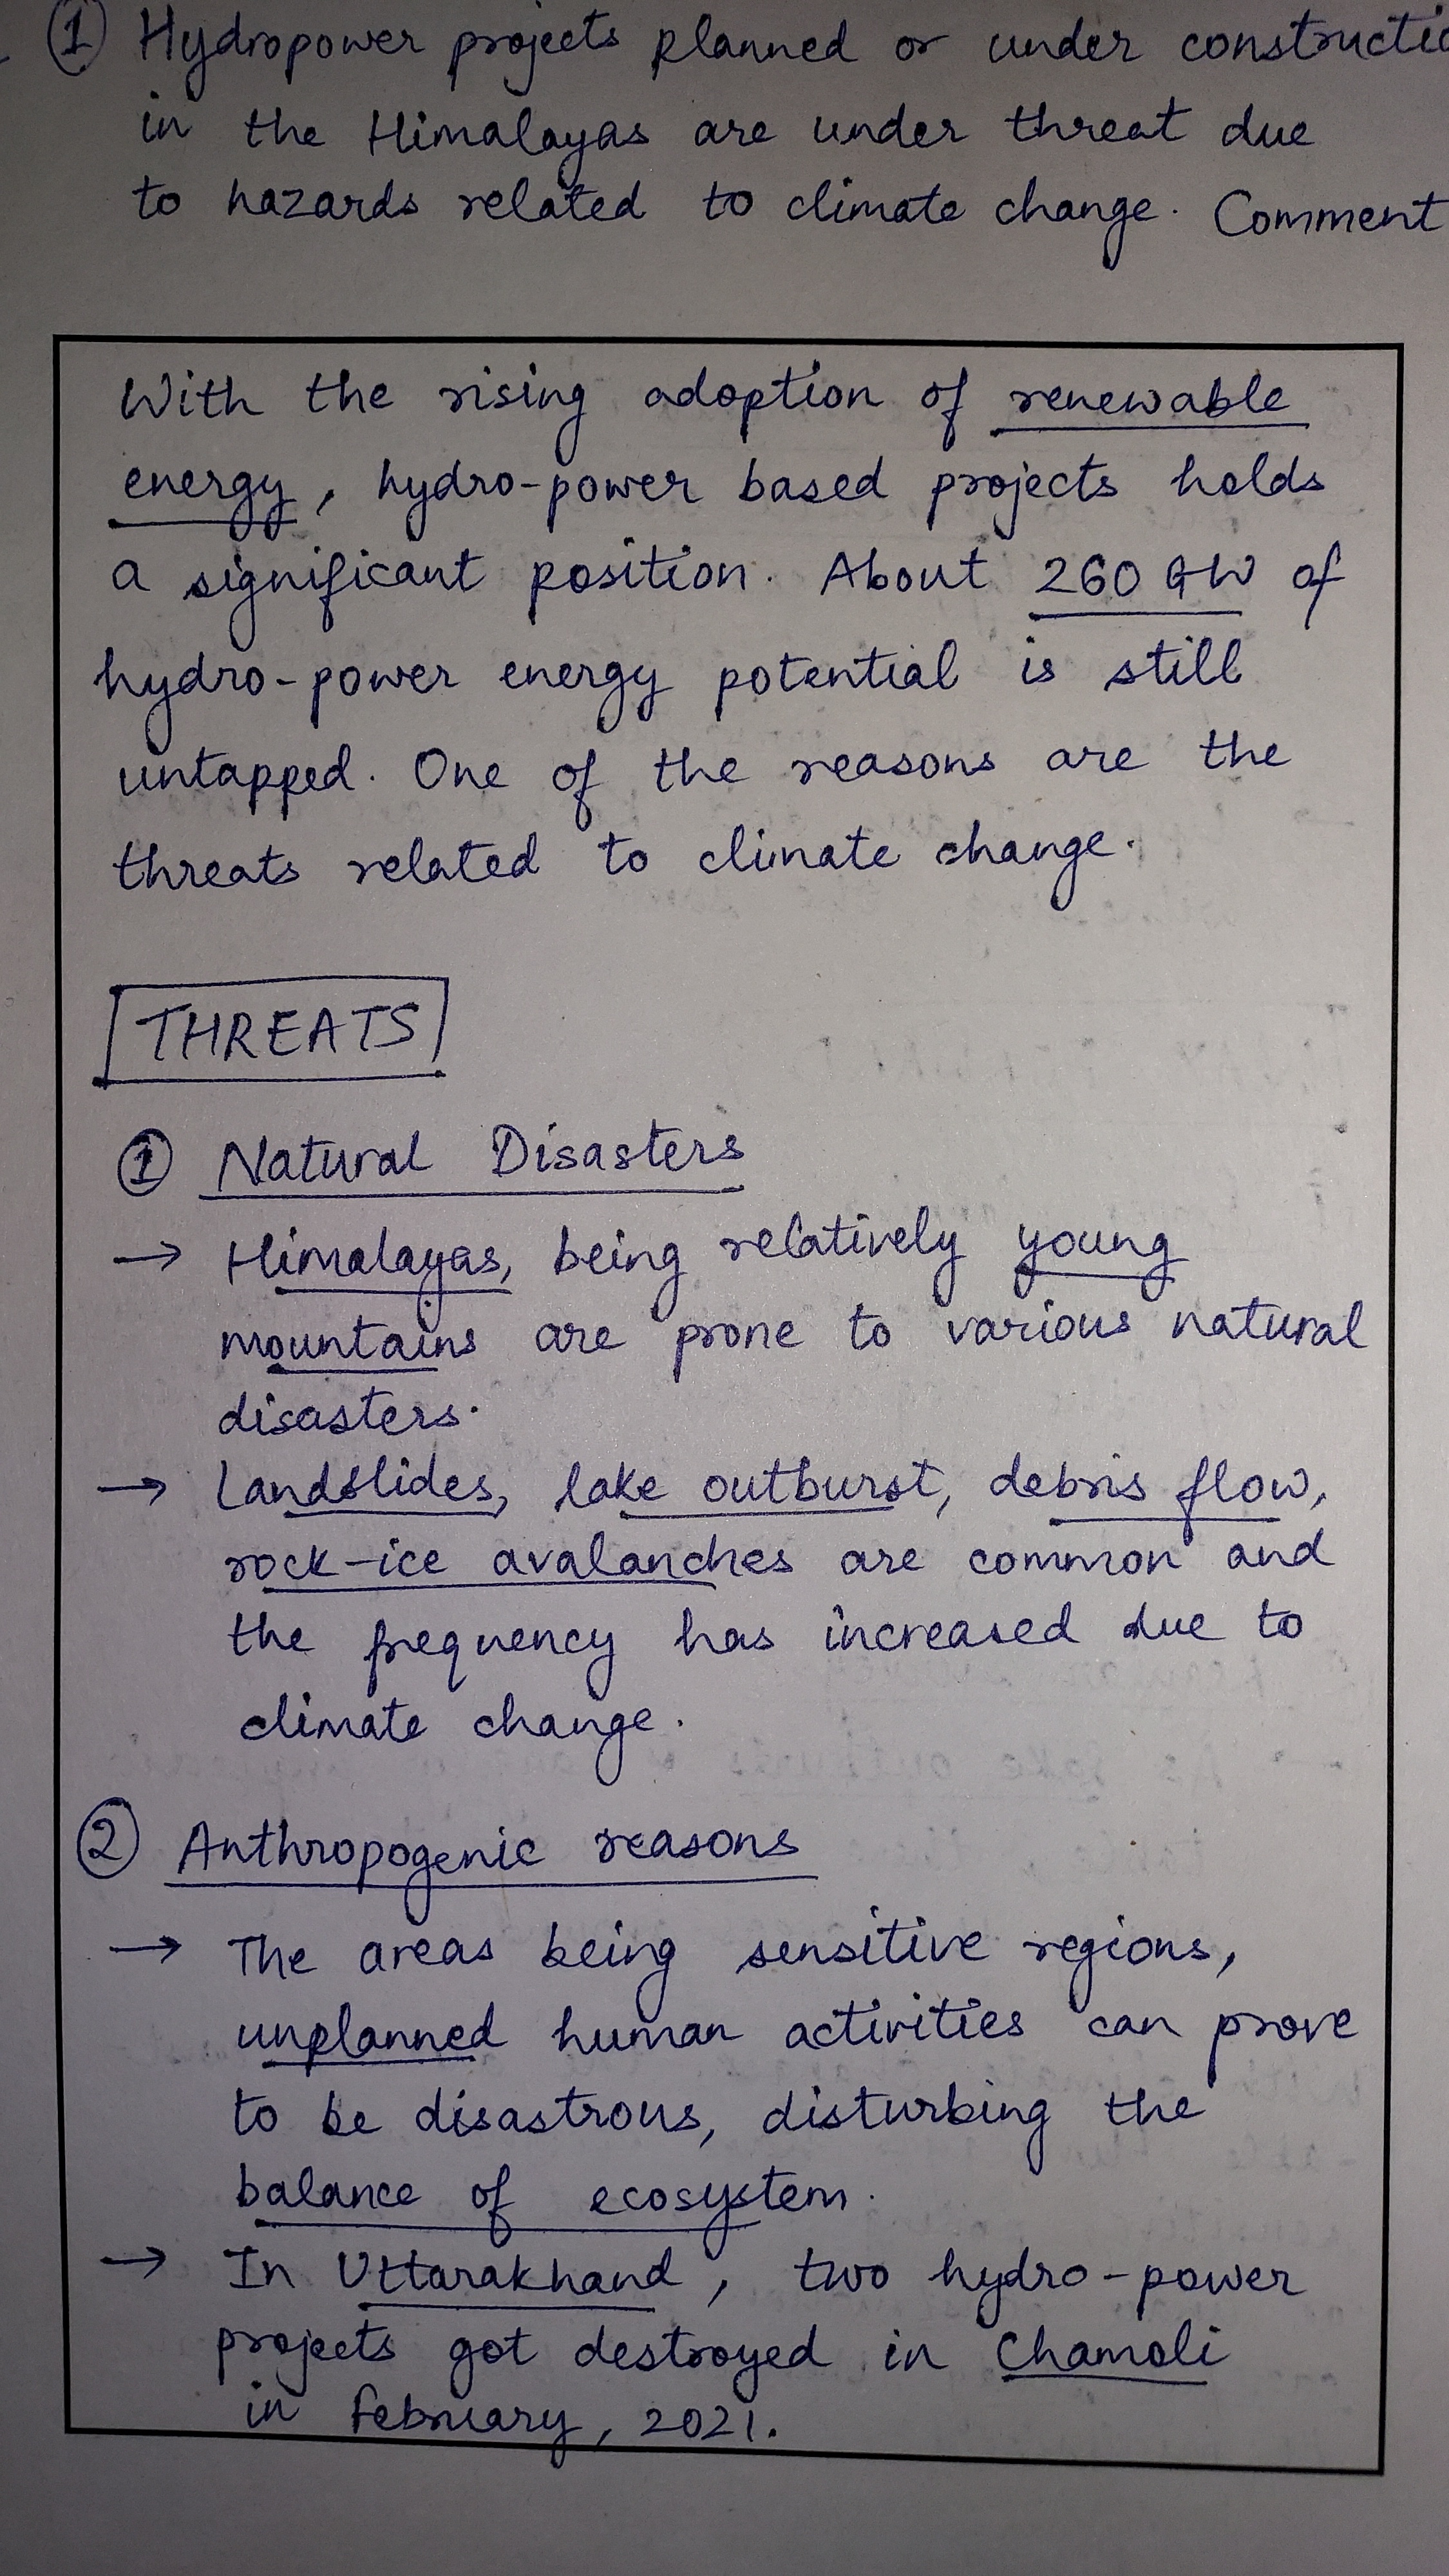 ① Hydropower projects planned or under constructio
in the Himalayas are under threat due
to hazards related to climate change. Comment
With the rising adoption of renewable
energy, hydro-power based projects holds
a significant position. About 260 GW of
hydro-power energy potential is still
untapped. One of the reasons are the
threats related to climate change.
THREATS
① Natural Disasters
→ Himalayas, being relatively young
mountains are prone to various natural
disasters.
→ Landslides, lake outburst, debris flow,
rock-ice avalanches are common and
the frequency has increased due to
climate change.
② Anthropogenic reasons
→ The areas being sensitive regions,
unplanned human activities can prove
to be disastrous, disturbing the
balance of ecosystem.
→ In Uttarakhand, two hydro-power
projects got destroyed in Chamoli
in February, 2021.